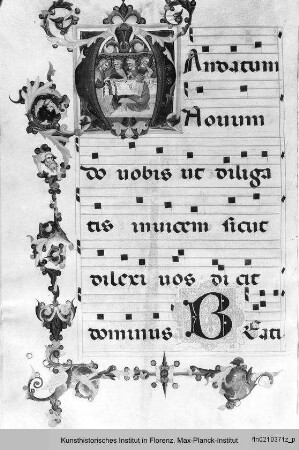 Mandatum
novum
do vobis ut diliga
tis invicem sicut
dilexi vos dicit
dominus Beati
Kunsthistorisches Institut in Florenz, Max-Planck-Institut
fln0210371z_p